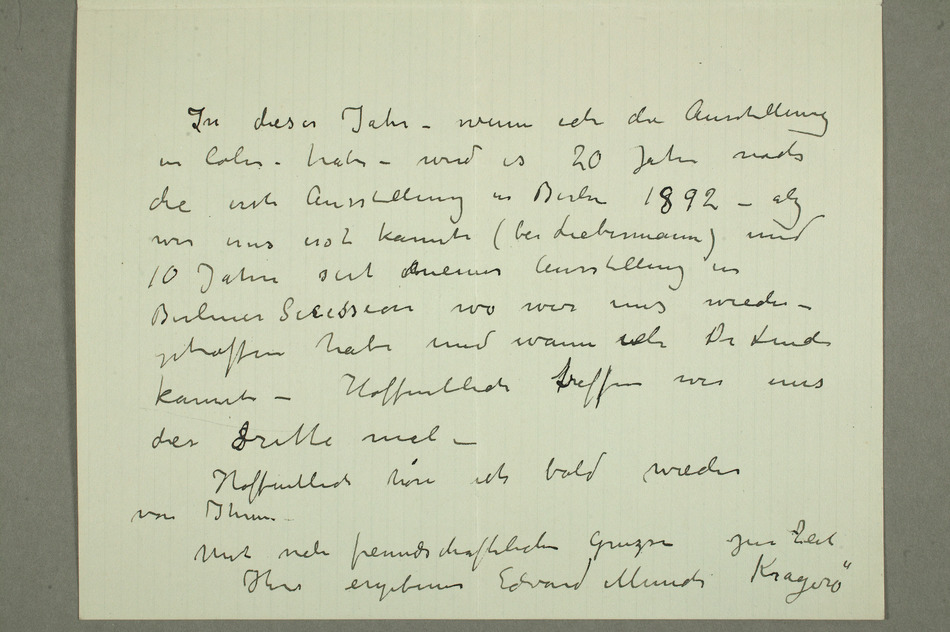 In dieser Jahr – wenn ich die Ausstellung
in Cöln – habe – wird es 20 Jahre nach
die erste Ausstellung in Berlin 1892 – als
wir uns erst kannte (bei Liebermann) und
10 Jahre seit meiner Ausstellung in
Berliner Secession wo wir uns wieder–
getroffen habe und wann ich Dr Linde
kannte – Hoffentlich treffen wir uns
der dritte mal –
Hoffentlich höre ich bald wieder
von Ihnen –
Mit viele freundschaftlichen Grüsse zur Zeit
Ihre ergebener Edvard Munch Kragerö"